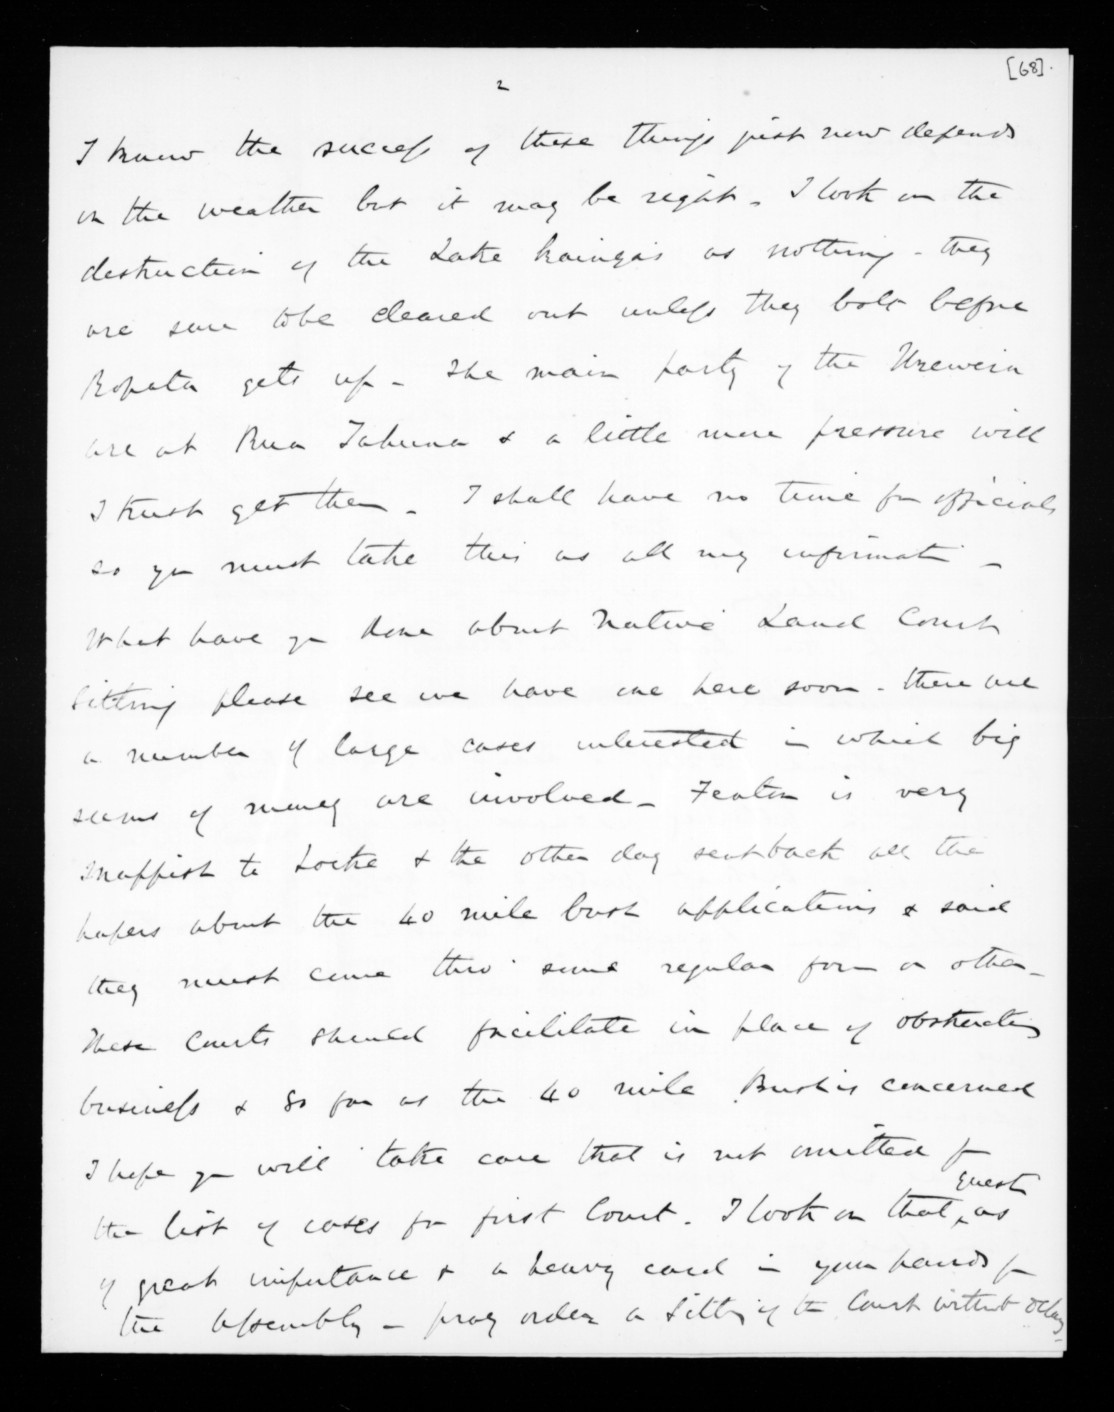 [68].
2
I know the success of these things just now depends
on the weather but it may be right. I look on the
destruction of the Lake kaingas as nothing - they
are sure to be cleared out unless they bolt before
Ropata gets up - The main party of the Urewera
are at Rua Tahuna & a little more pressure will
I trust get them - I shall have no time for officials
so you must take this as all my informatn -
What have you done about Native Land Court
sitting please see we have one here soon - there are
a number of large cases interested in which big
sums of money are involved - Fenton is very
snappish to Locke & the other day sent back all the
papers about the 40 mile bush applications & said
they must come thro' some regular form or other -
These Courts should facilitate in place of obstructing
business & so far as the 40 mile Bush is concerned
I hope you will take care that is not omitted fm
the list of cases for first Court. I look on that questn as
of great importance & a heavy card in your hands for
the Assembly - pray order a sitting of the Court without delay -